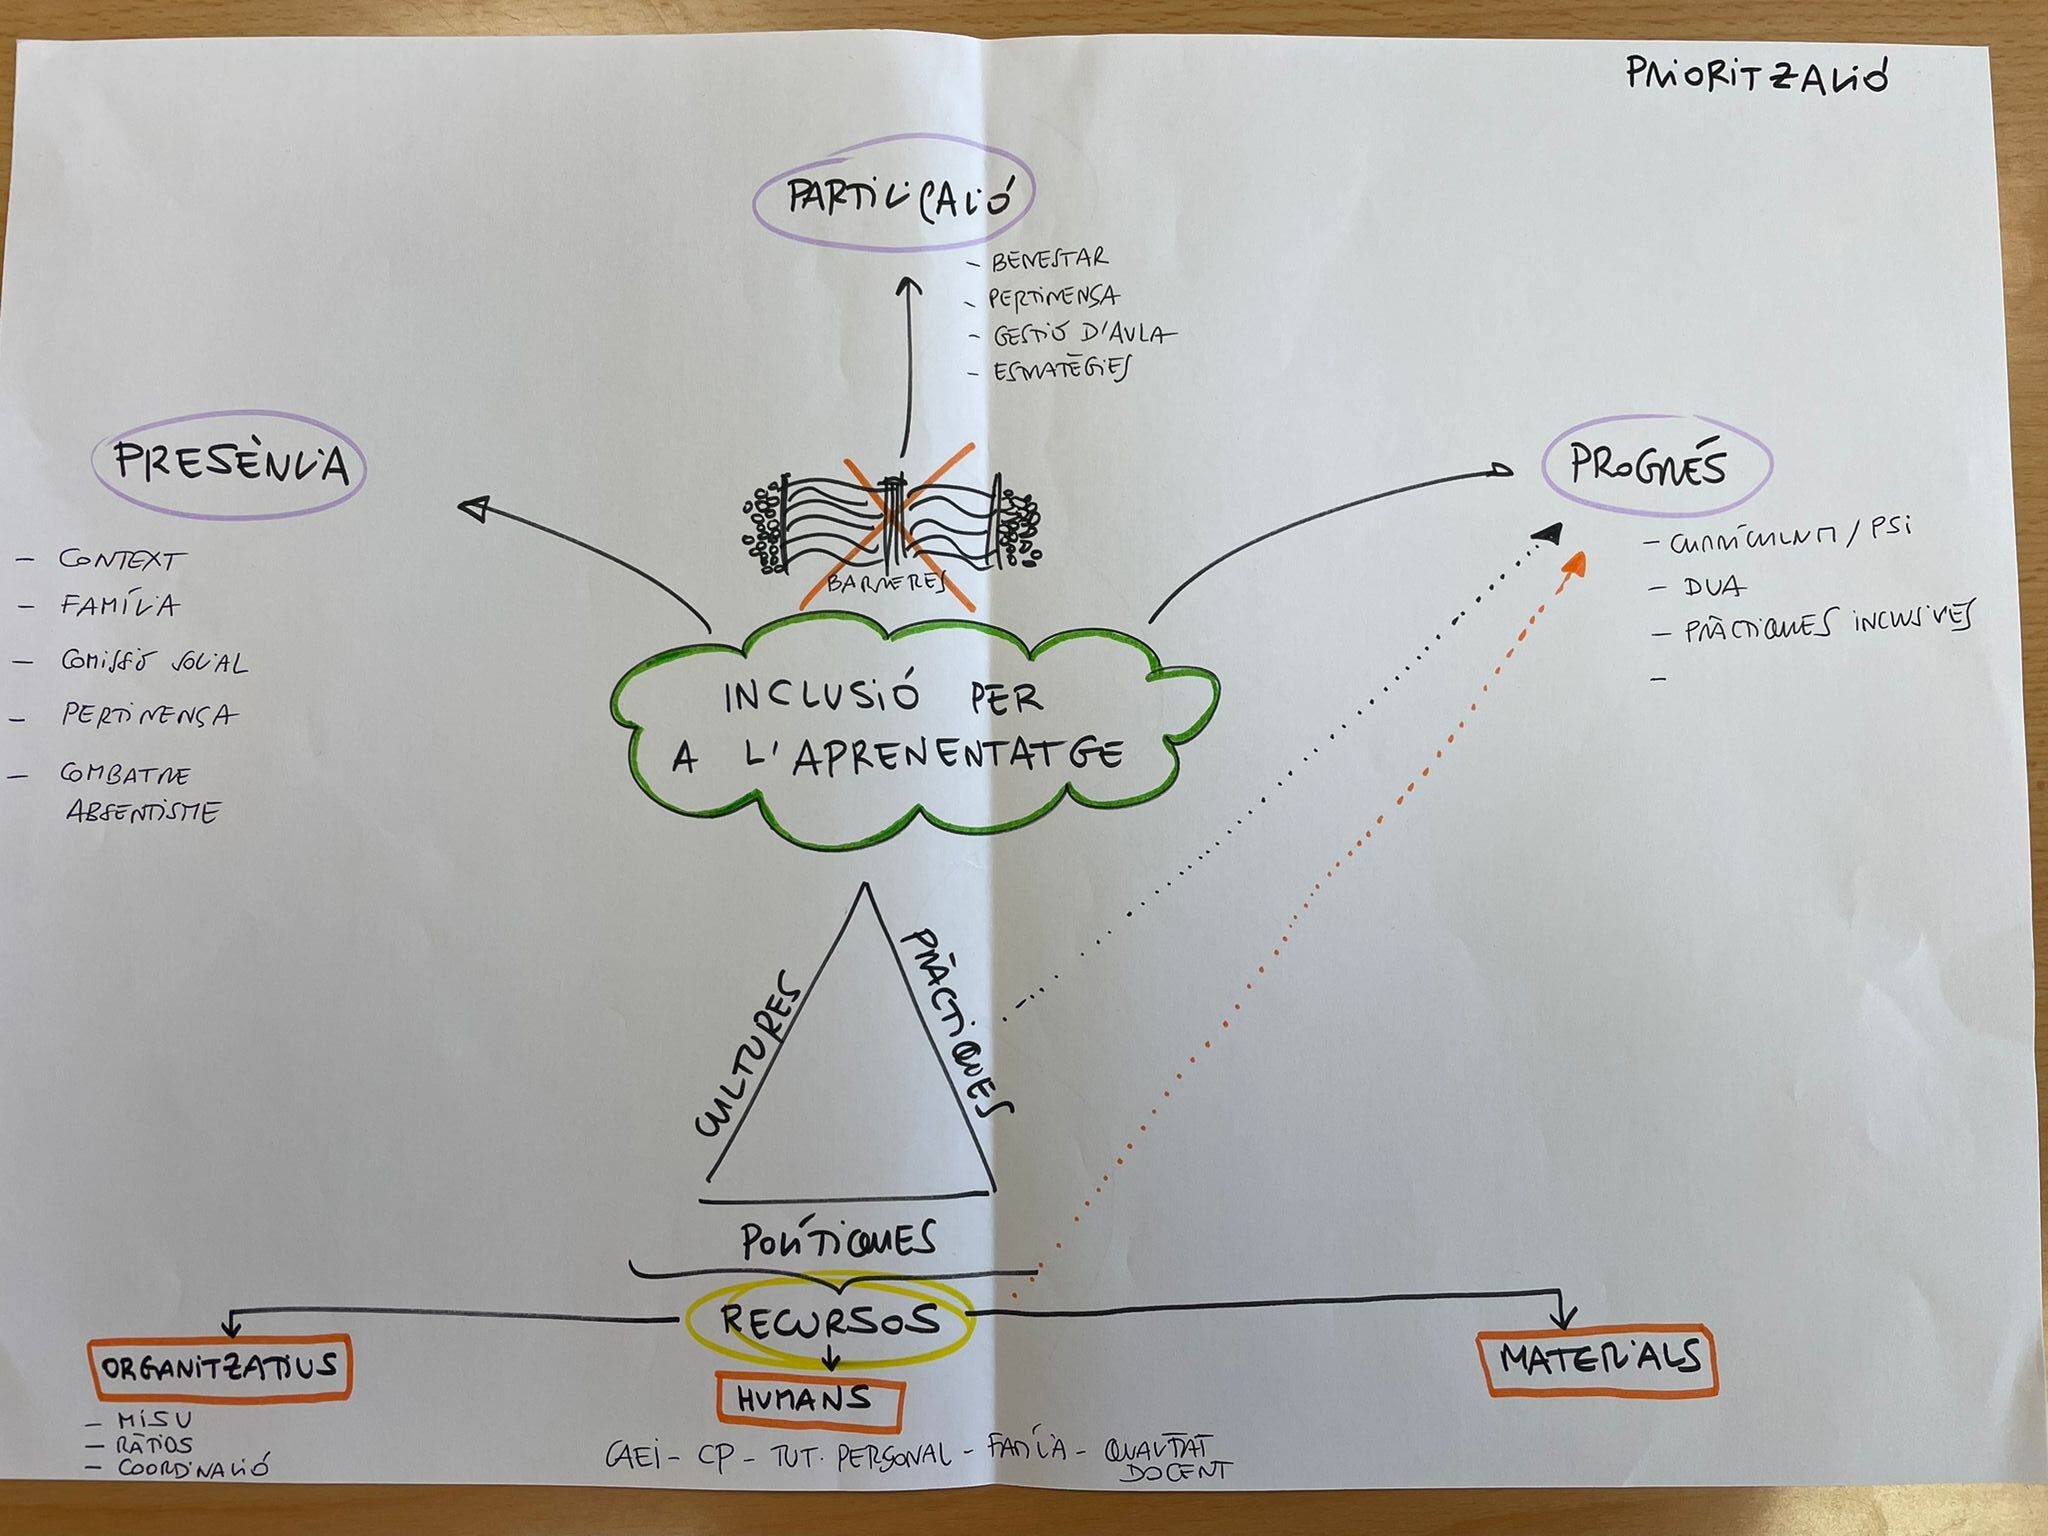 PRIORITZACIÓ
PARTICIPACIÓ
- BENESTAR
- PERTINENÇA
- GESTIÓ D'AULA
- ESTRATÈGIES
PRESÈNCIA
- CONTEXT
- FAMÍLIA
- COMISSIÓ SOCIAL
- PERTINENÇA
- COMBATRE
ABSENTISME
BARRERES
PROGRÉS
- CURRÍCULUM / PSI
- DUA
- PRÀCTIQUES INCLUSIVES
-
INCLUSIÓ PER
A L'APRENENTATGE
CULTURES
PRÀCTIQUES
POLÍTIQUES
RECURSOS
ORGANITZATIUS
- MISU
- RÀTIOS
- COORDINACIÓ
HUMANS
CAEI - CP - TUT. PERSONAL - FAMÍLIA - QUALITAT
DOCENT
MATERIALS